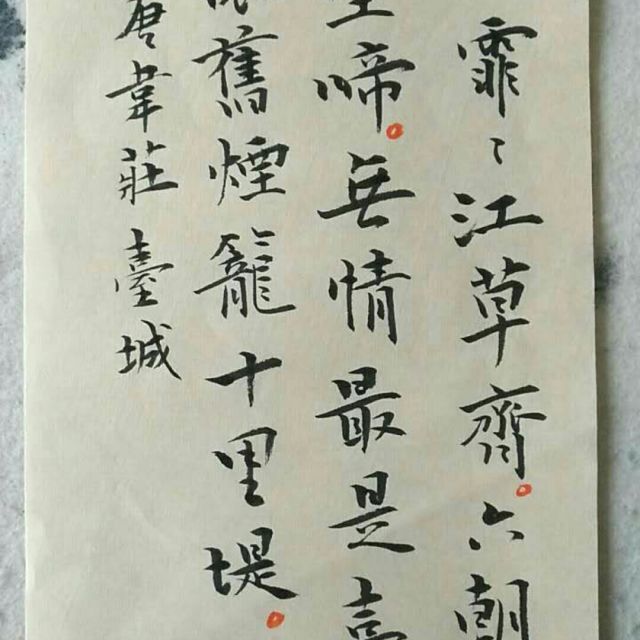 霏〻江草齊。六朝
啼。無情最是
舊煙籠十里堤。
唐韋莊臺城